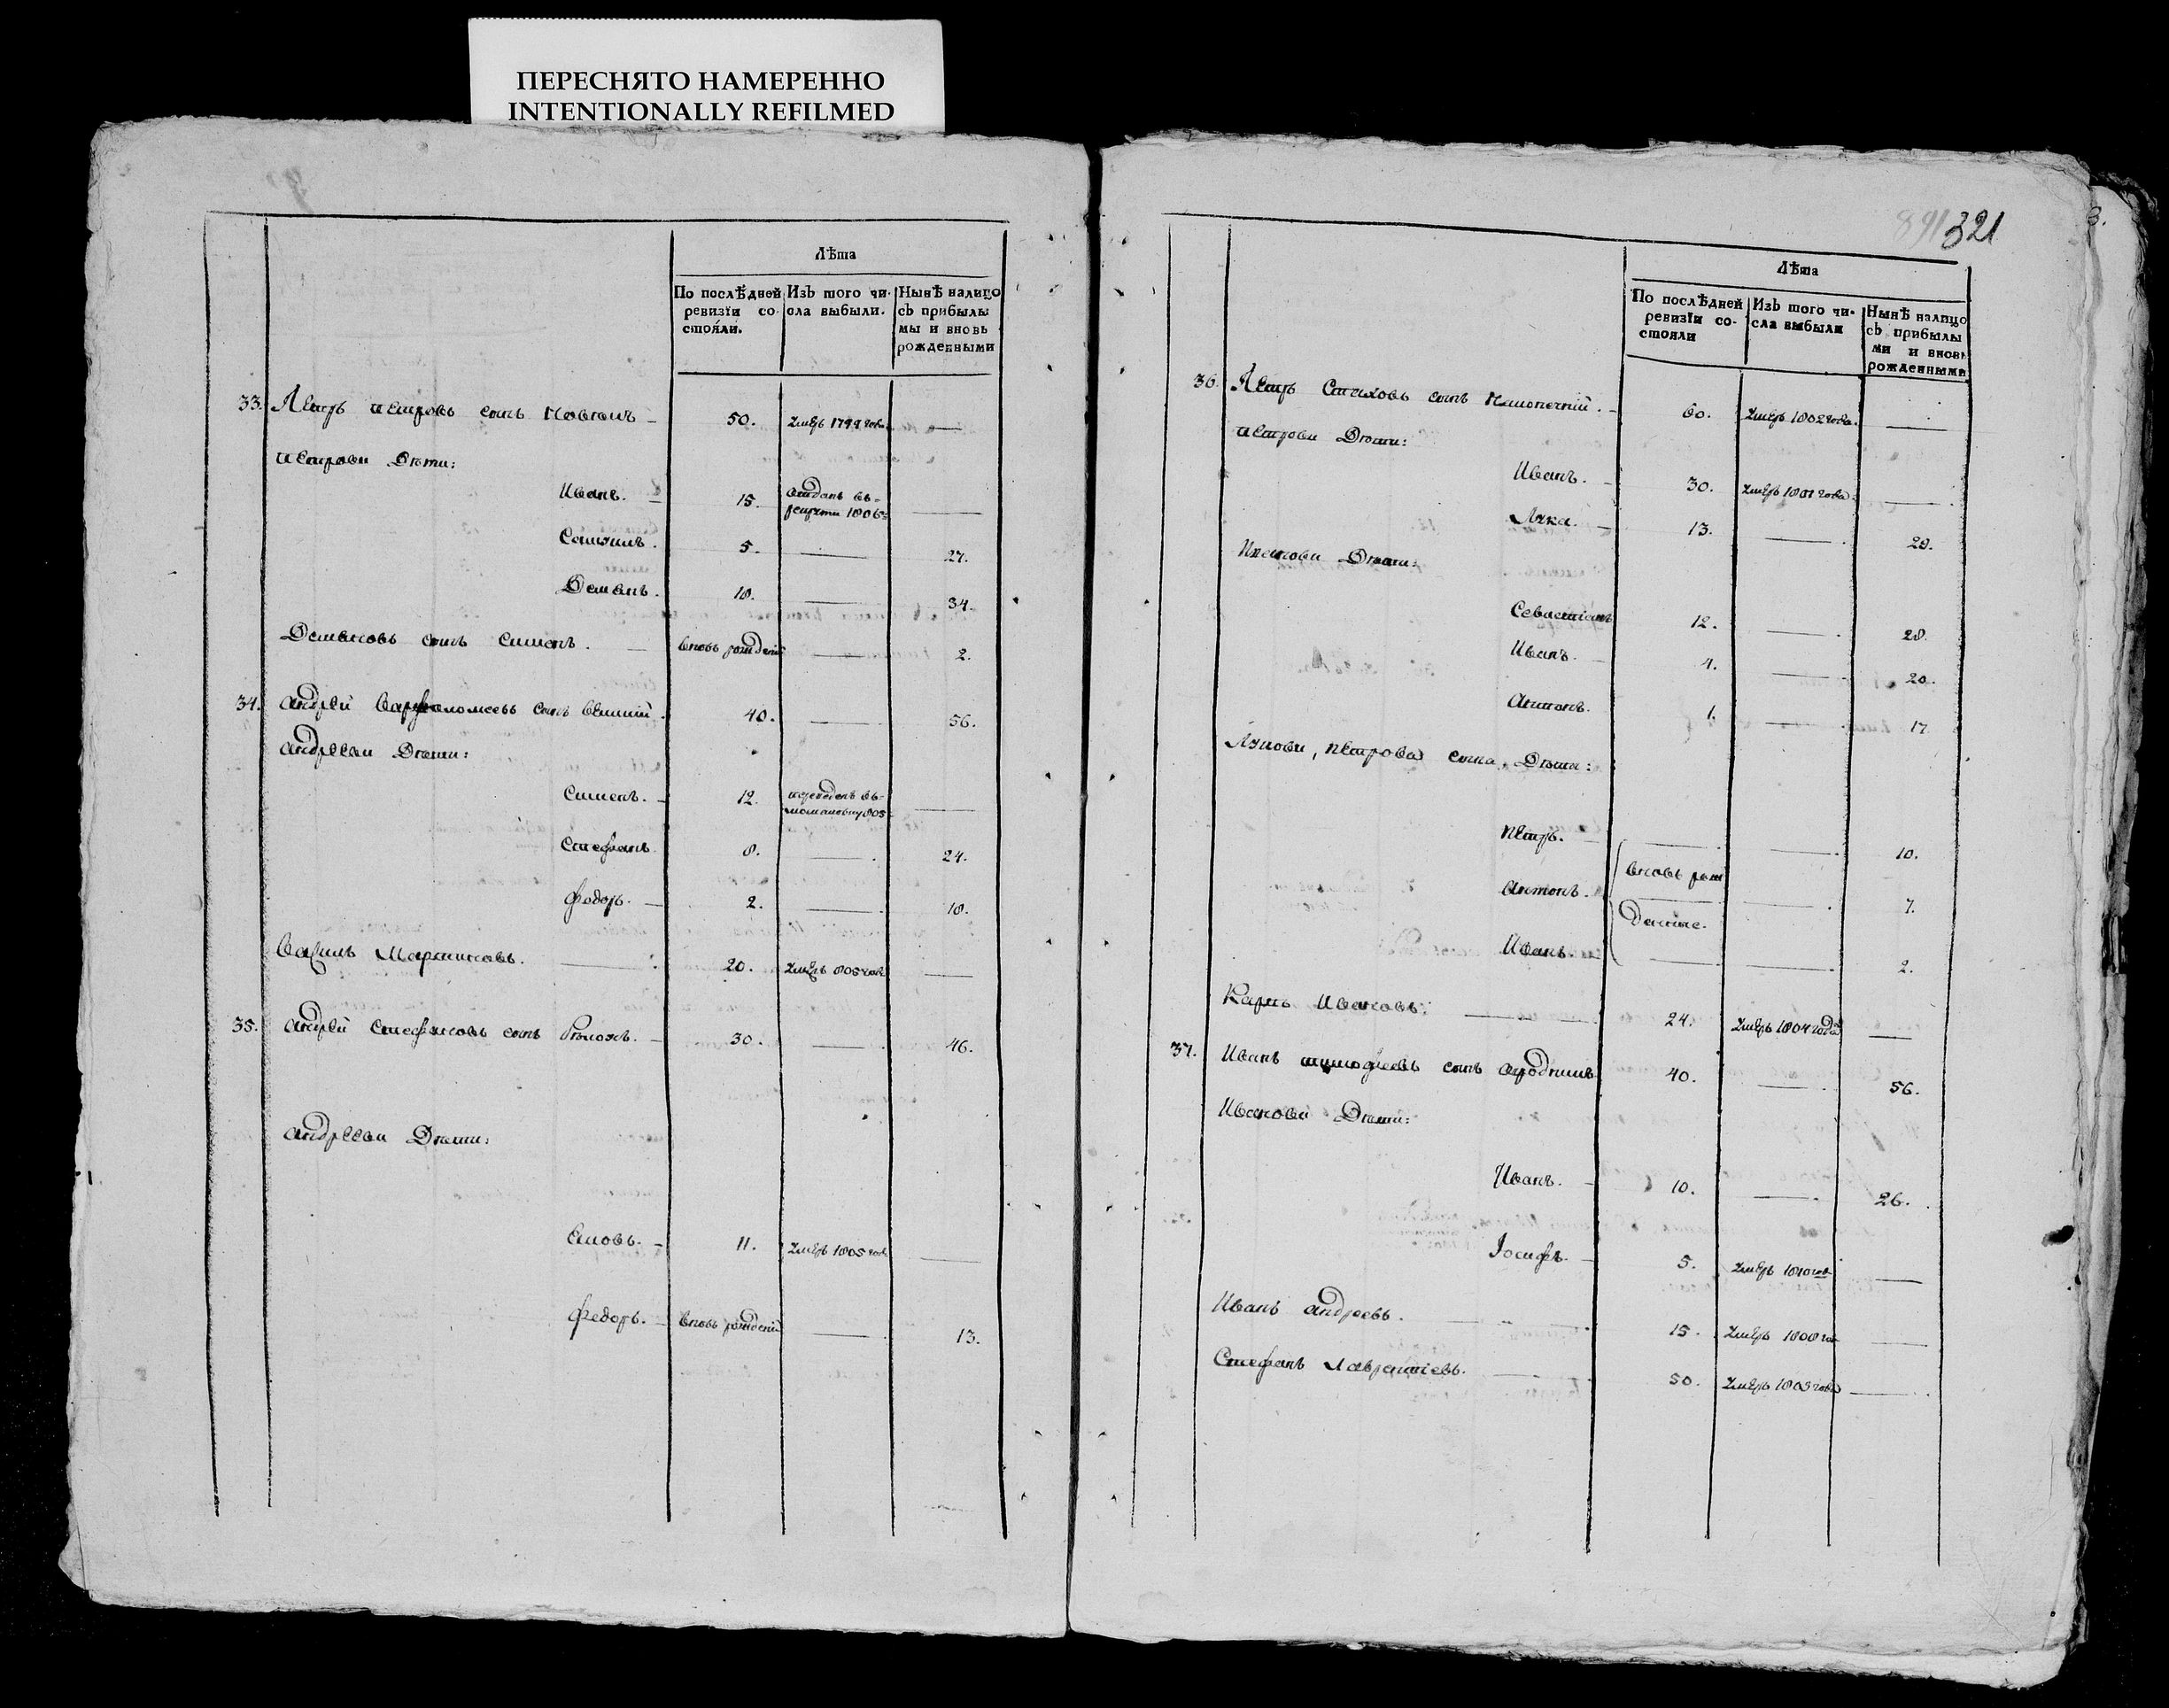 ПЕРЕСНЯТО НАМЕРЕННО
INTENTIONALLY REFILMED
Лѣта
По послѣдней ревизїи состояли.
Изъ того числа выбыли.
Нынѣ налицо съ прибылымы и вновь рожденными
33. Петръ Петровъ сынъ 50. Умеръ 1799 года
Петрови Дѣти:
Иванъ. 15. отданъ въ рекруты 1806
Самуилъ. 5. 27.
Демянъ. 18. 34.
Демяновъ сынъ Симонъ. вновь рожденный 2.
34. Андрей Варфоломеевъ сынъ 40. 56.
Андрееви Дѣти:
Симонъ. 12. 805
Стефанъ 8. 24.
Федоръ. 2. 18.
Василъ Мартиновъ. 20. Умеръ 805 года
35. Андрей Стефановъ сынъ 30. 46.
Андрееви Дѣти:
Яковъ. 11. Умеръ 1805 года
Федоръ. Вновь рожденный 13.
891 321
Лѣта
По послѣдней ревизїи состояли
Изъ того числа выбыли
Нынѣ налицо съ прибылыми и вновь рожденными
36. Петръ сынъ 60. Умеръ 1802 года.
Петрови Дѣти:
Иванъ. 30. Умеръ 1801 года.
Лука. 13. 29.
Ивановы Дѣти:
Севастіанъ 12. 28.
Иванъ. 4. 20.
Антонъ. 1. 17
Лукови, Петрова сина, Дѣти:
Петръ. 10.
Антонъ. вновь рож 7.
денные.
Иванъ. 2.
Карпъ Ивановъ. 24. Умеръ 1804 года
37. Иванъ Тимофеевъ сынъ 40. 56.
Иванови Дѣти:
Иванъ. 10. 26.
Іосифъ. 5. Умеръ 1810 год
Иванъ Андреевъ. 15. Умеръ 1808 го
Стефанъ Лаврентіевъ. 50. Умеръ 1803 года